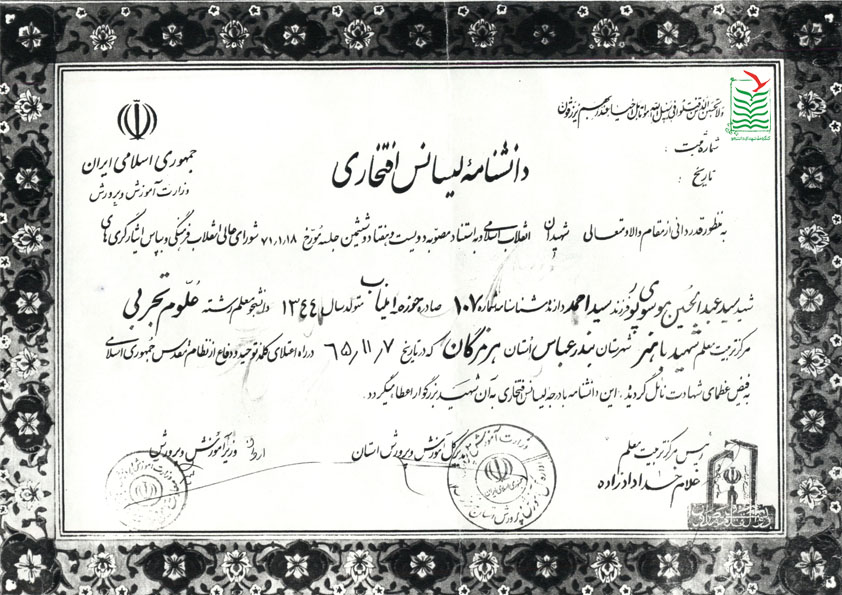 ولا تحسبن الذین قتلوا فی سبیل الله امواتا بل احیاء عند ربهم یرزقون
شماره ثبت :
تاریخ :
جمهوری اسلامی ایران
وزارت آموزش و پرورش
دانشنامهٔ لیسانس افتخاری
به منظور قدردانی از مقام والا و متعالی شهیدان انقلاب اسلامی و به استناد مصوبه دویست و هفتاد و ششمین جلسه مورخ ۷۱،۱،۱۸ شورای عالی انقلاب فرهنگی و بپاس ایثارگری های
شهید سید عبدالحسین موسوی پور فرزند سید احمد دارنده شناسنامه شماره ۱۰۷ صادره حوزه متولد سال ۱۳۴۴ دانشجو معلم رشته علوم تجربی
مرکز تربیت معلم شهید باهنر شهرستان بندرعباس استان هرمزگان که در تاریخ ۶۵،۱۱،۷ در راه اعتلای کلمه توحید و دفاع از نظام مقدس جمهوری اسلامی
به فیض عظمای شهادت نایل گردید، این دانشنامه با درجه لیسانس افتخاری به آن شهید بزرگوار اعطا میگردد.
رئیس مرکز تربیت معلم
غلام خدادادزاده
مدیر کل آموزش و پرورش استان
وزیر آموزش و پرورش
وزارت آموزش
جمهوری اسلامی ایران